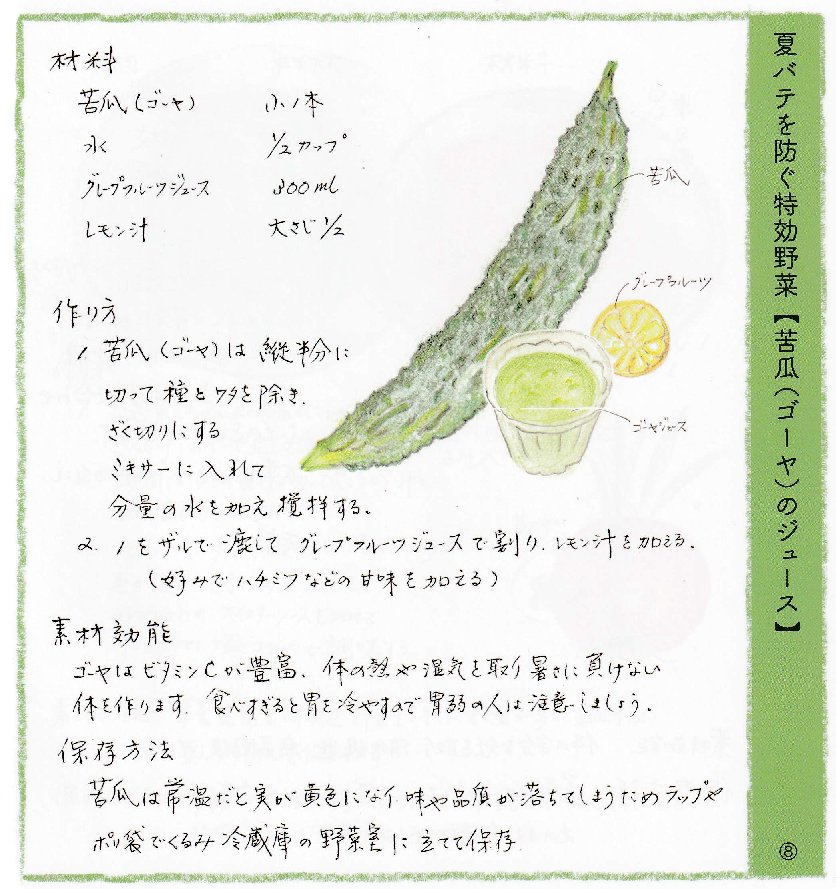 夏バテを防ぐ特効野菜【苦瓜(ゴーヤ)のジュース】
材料
苦瓜(ゴーヤ) 小1本
水 1/2カップ
グレープフルーツジュース 300ml
レモン汁 大さじ1/2
苦瓜
グレープフルーツ
ゴーヤジュース
作り方
1 苦瓜(ゴーヤ)は縦半分に
切って種とワタを除き、
ざく切りにする
ミキサーに入れて
分量の水を加え撹拌する。
2. 1をザルで漉して グレープフルーツジュースで割り、レモン汁を加える。
(好みでハチミツなどの甘味を加える)
素材効能
ゴーヤはビタミンCが豊富、体の熱や湿気を取り暑さに負けない
体を作ります。食べすぎると胃を冷やすので胃弱の人は注意しましょう。
保存方法
苦瓜は常温だと実が黄色になり、味や品質が落ちてしまうためラップや
ポリ袋でくるみ冷蔵庫の野菜室に立てて保存
⑧